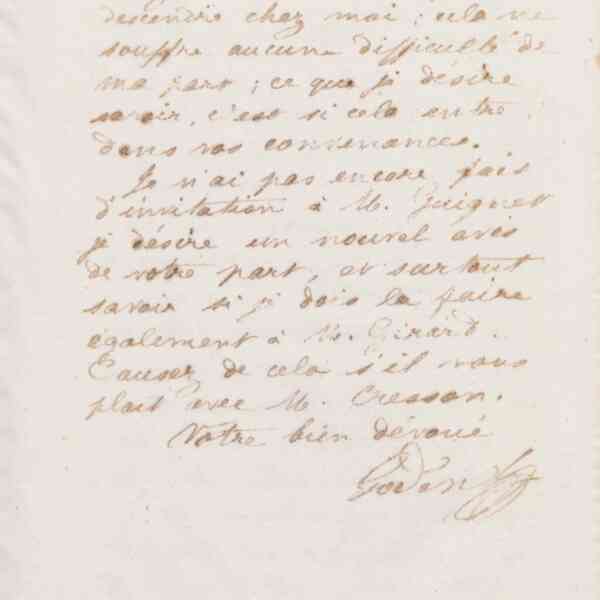 descendre chez moi ; cela ne
souffre aucune difficulté de
ma part ; ce que je désire
savoir, c'est si cela entre
dans vos convenances.
Je n'ai pas encore fait
d'invitation à M. Guignet
je désire un nouvel avis
de votre part, et surtout
savoir si je dois la faire
également à M. Girard.
Causez de cela s'il vous
plait avec M. Cresson.
Votre bien dévoué
Godin